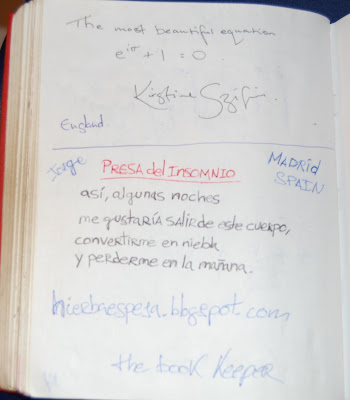 The most beautiful equation
e^iπ + 1 = 0
England.
Jorge
PRESA del INSOMNIO
MADRID
SPAIN
así, algunas noches
me gustaría salir de este cuerpo,
convertirme en niebla
y perderme en la mañana.
hierbaespesa.blogspot.com
the book Keeper